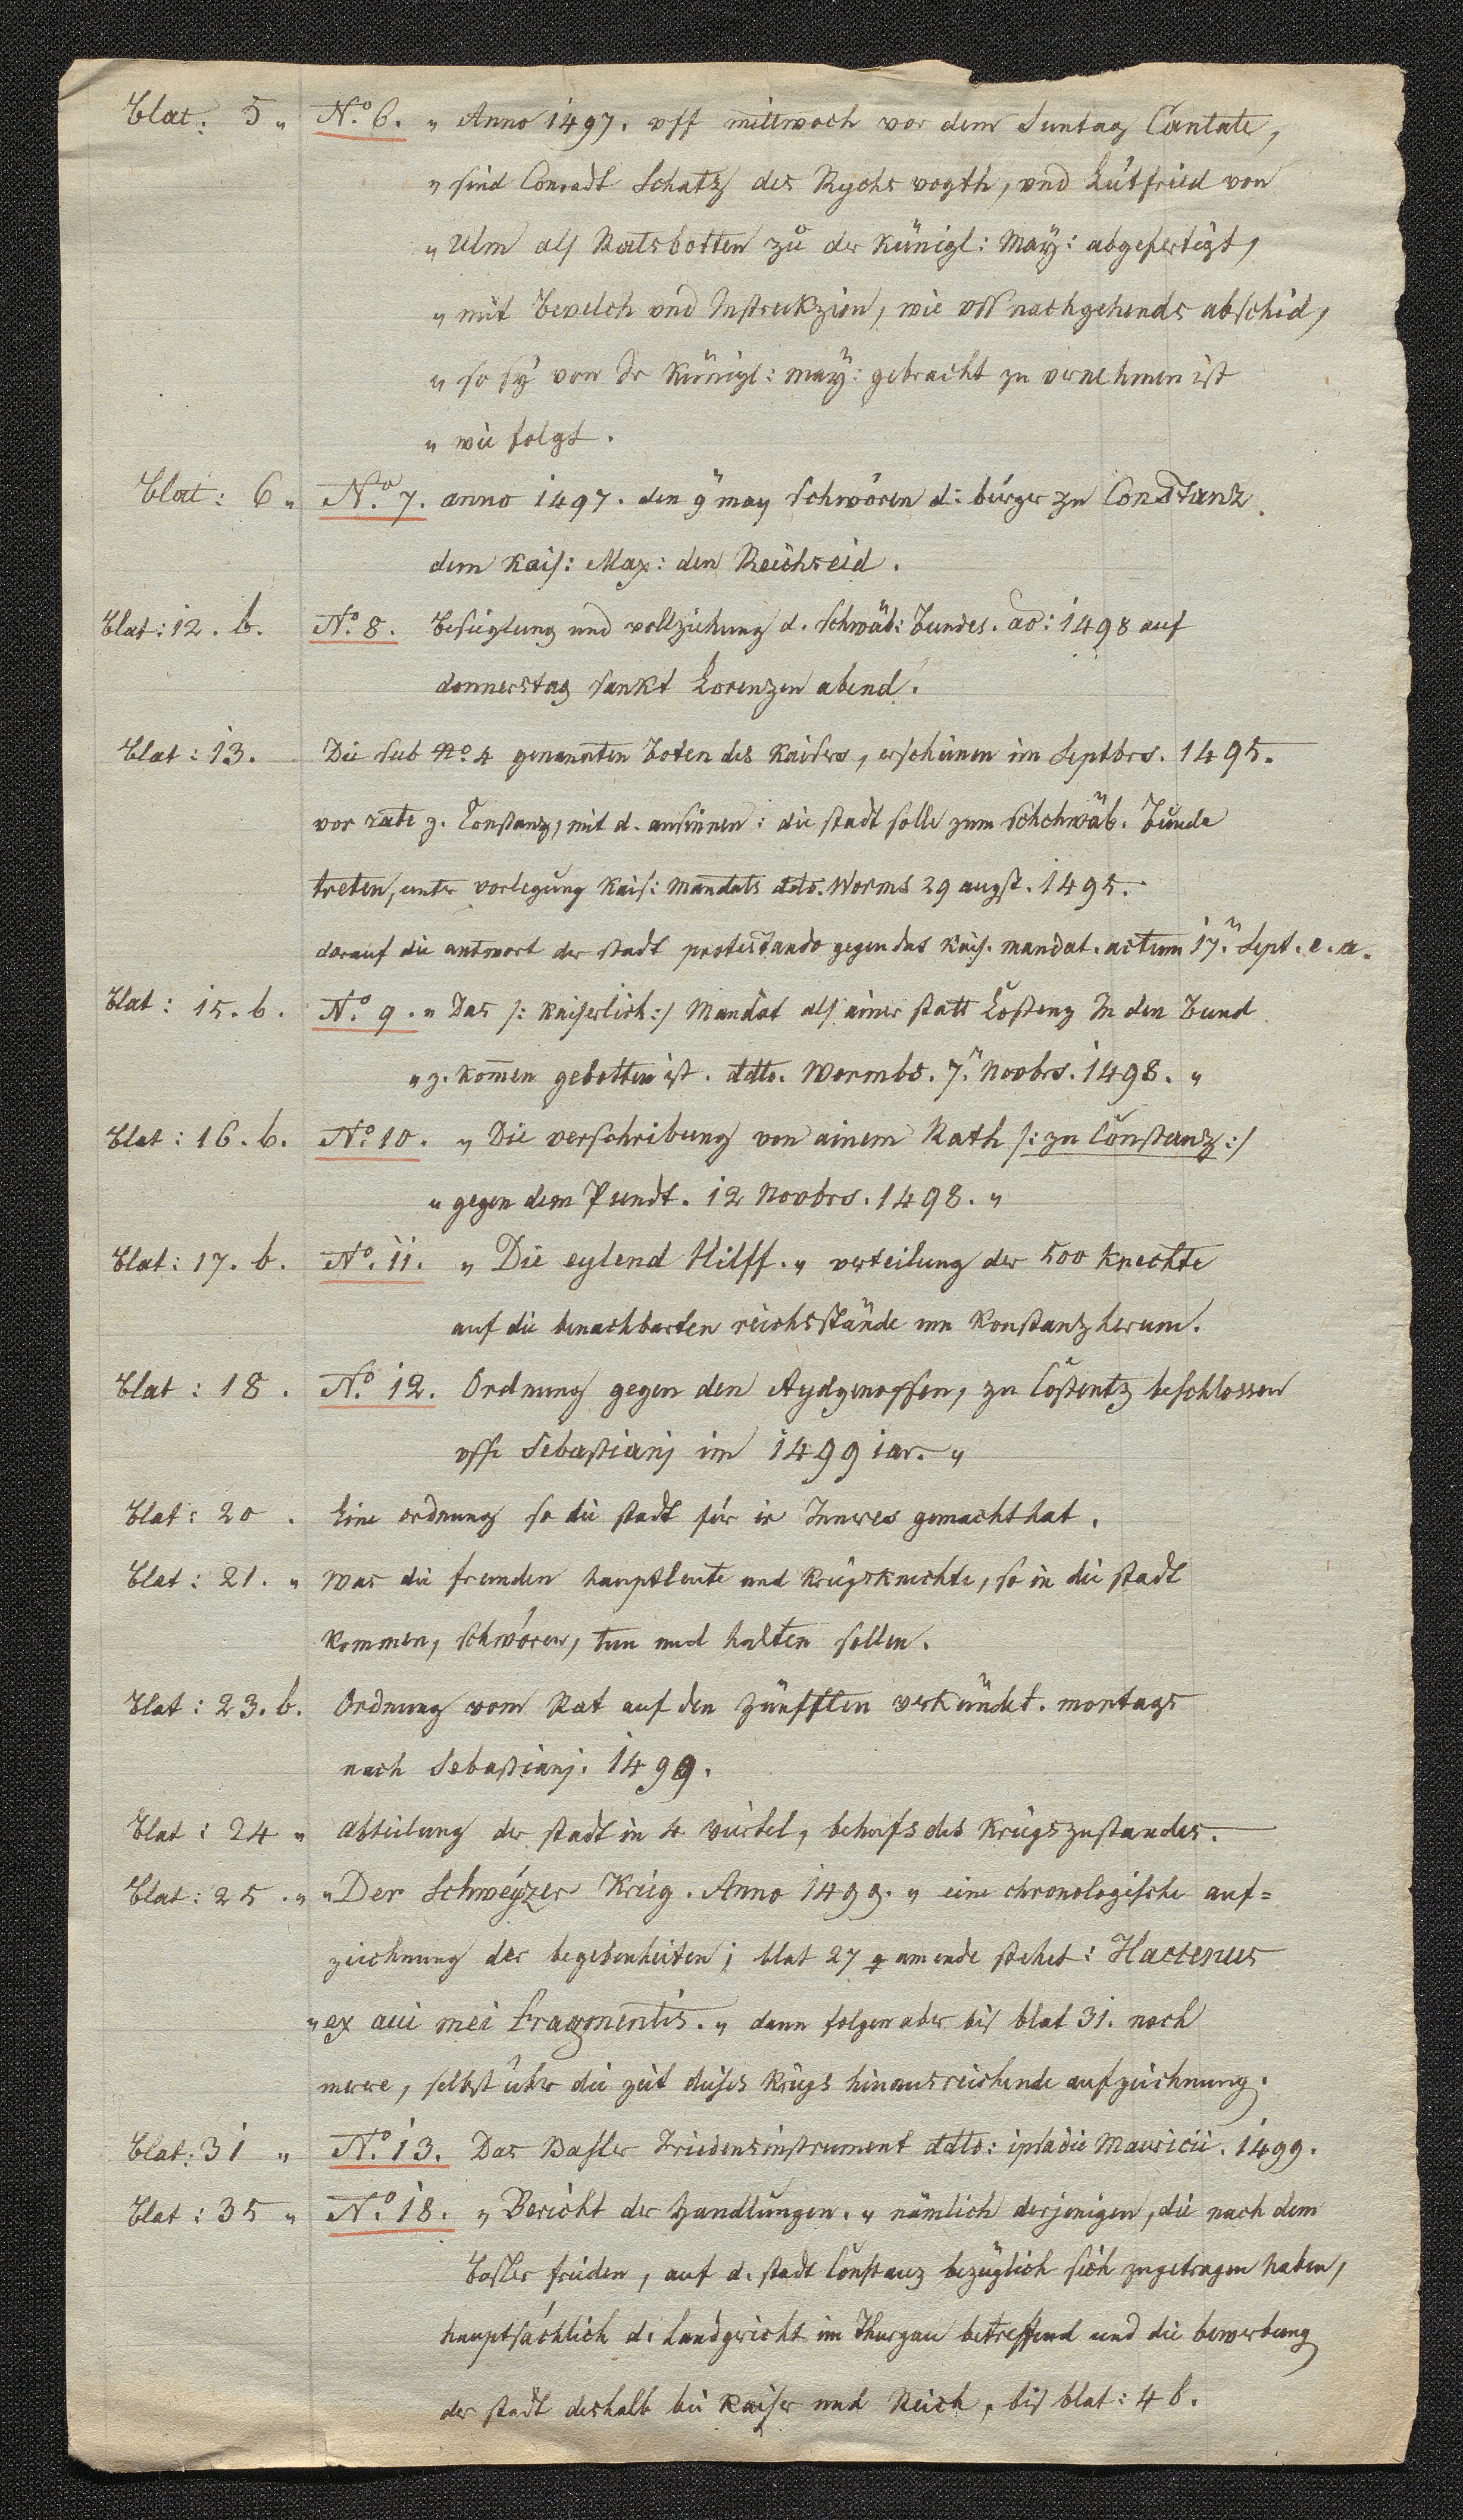 blat: 5 „ No. 6. „ Anno 1497. vff mittwoch vor dem Suntag Cantate,
„ sind Conradt Schatz des Rychs vogth, vnd Lütfried von
„ Ulm als Ratsbotten zů der künigl: May: abgefertigt,
„ mit bevelch vnd Instrukzion, wie vss nachgehends abschid,
„ so sÿ von Ir künigl: maÿ: gebracht zu vernehmen ist
„ wie folgt.
blat: 6 „ No. 7. anno 1497. den 9 may schwören d: bürger zu Constanz
dem kais: Max: den Reichseid.
blat: 12. b. No. 8. Besieglung und vollziehung d. schwäb: bundes. ao: 1498 auf
donnerstag sankt Lorenzen abend.
blat: 13. Die sub No. 4 genannten boten des kaisers, erscheinen im Septbrs. 1495.
vor rate z. Constanz, mit d. ansinnen: die stadt solle zum schchwäb. bunde
treten, unter vorlegung kais: mandats ddto. Worms 29 augst. 1495.
darauf die antwort der stadt protestando gegen das kais. mandat. actum 17. Sept. e. a.
blat: 15. b. No. 9. „ Das /: kaiserlich :/ Mandat als ainer statt Costenz In den bund
„ z. komen gebotten ist. ddto. Wormbs. 7. Novbrs. 1498. „
blat: 16. b. No. 10. „ Die verschribung von ainem Rath /: zu Constanz :/
„ gegen dem Pundt. 12 Novbrs. 1498. „
blat: 17. b. No. 11. „ Die eylend Hilff. „ verteilung der 500 knechte
auf die benachbarten reichsstände um Konstanz herum.
blat: 18. No. 12. Ordnung gegen den Aydgenossen, zu Costentz beschlossen
vff Sebastianj im 1499 iar. „
blat: 20. Eine ordnung so die stadt für ir Inneres gemacht hat.
blat: 21. „ was die fremden hauptleute und kriegsknechte, so in die stadt
kommen, schwören, tun und halten sollen.
blat: 23. b. Ordnung vom Rat auf den zünfften verkündet. montags
nach Sebastianj. 1499.
blat: 24 „ abteilung der stadt in 4 viertel, behufs des kriegszustandes.
blat: 25. „ „ Der Schweÿzer Krieg. Anno 1499. „ eine chronologische auf=
zeichnung der begebenheiten; blat 27 am ende stehet: Hactenus
„ ex aui mei fragmentis. „ dann folgen aber bis blat 31. noch
merere, selbst über die zeit dieses kriegs hinausreichende aufzeichnung.
blat: 31 „ No. 13. Das Basler Friedensinstrument ddto: ipsa die Mauricii. 1499.
blat: 35 „ No. 18. „ Bericht der handlungen. „ nämlich derjenigen, die nach dem
basler frieden, auf d. stadt Constanz bezüglich sich zugetragen haben,
hauptsächlich d. landgericht im Thurgau betreffend und die bewerbung
der stadt deshalb bei kaiser und Reich, bis blat: 46.